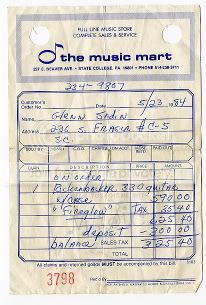 FULL LINE MUSIC STORE
COMPLETE SALES & SERVICE
the music mart
227 E. BEAVER AVE. • STATE COLLEGE, PA. 16801 • PHONE
234-9807
Customer's Order No. Date 5/23 1984
Name Glenn
Address 226 S. Frasier #C-5
S.C.
SOLD BY C.O.D. CHARGE PAID OUT
DESCRIPTION PRICE AMOUNT
on order
1 Rickenbacker 330 guitar
w/case 590.00
"Fireglow" TAX 35 40
625 40
deposit -300 00
balance SALES TAX 325 40
TOTAL
All claims and returned goods MUST be accompanied by this bill.
3798 Rec'd by